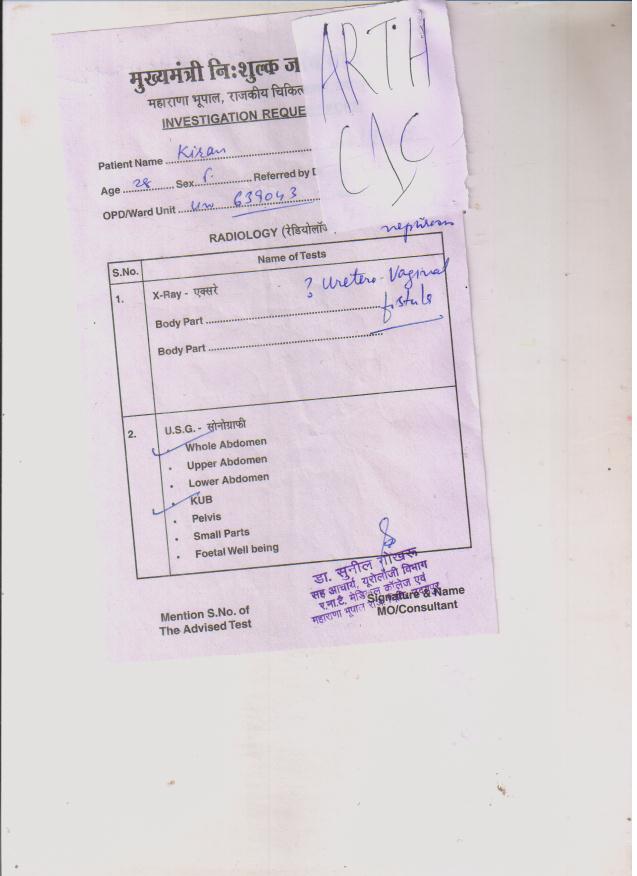 ARTH
CDC
मुख्यमंत्री नि:शुल्क ज
महाराणा भूपाल, राजकीय चिकित
INVESTIGATION REQUE
Patient Name Kiran
Age 28 Sex f. Referred by D
OPD/Ward Unit 639043
RADIOLOGY (रेडियोलॉ
S.No. Name of Tests
1. X-Ray - एक्सरे ? Uretero-Vaginal
fistula
Body Part
Body Part
2. U.S.G. - सोनोग्राफी
Whole Abdomen
• Upper Abdomen
• Lower Abdomen
• KUB
• Pelvis
• Small Parts
• Foetal Well being
डा. सुनील गोखरू
सह आचार्य, यूरोलॉजी विभाग
र.ना.टै. मेडिकल कॉलेज एवं
महाराणा भूपाल
Mention S.No. of
The Advised Test
Signature & Name
MO/Consultant